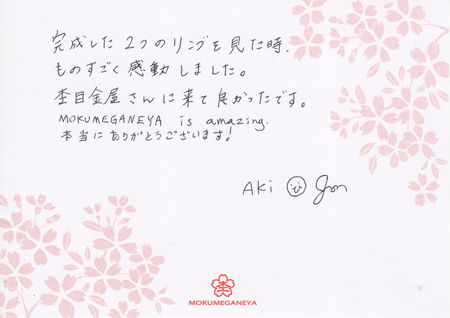 完成した2つのリングを見た時、
ものすごく感動しました。
杢目金屋さんに来て良かったです。
MOKUMEGANEYA is amazing.
本当にありがとうございます!
AKi
杢
MOKUMEGANEYA